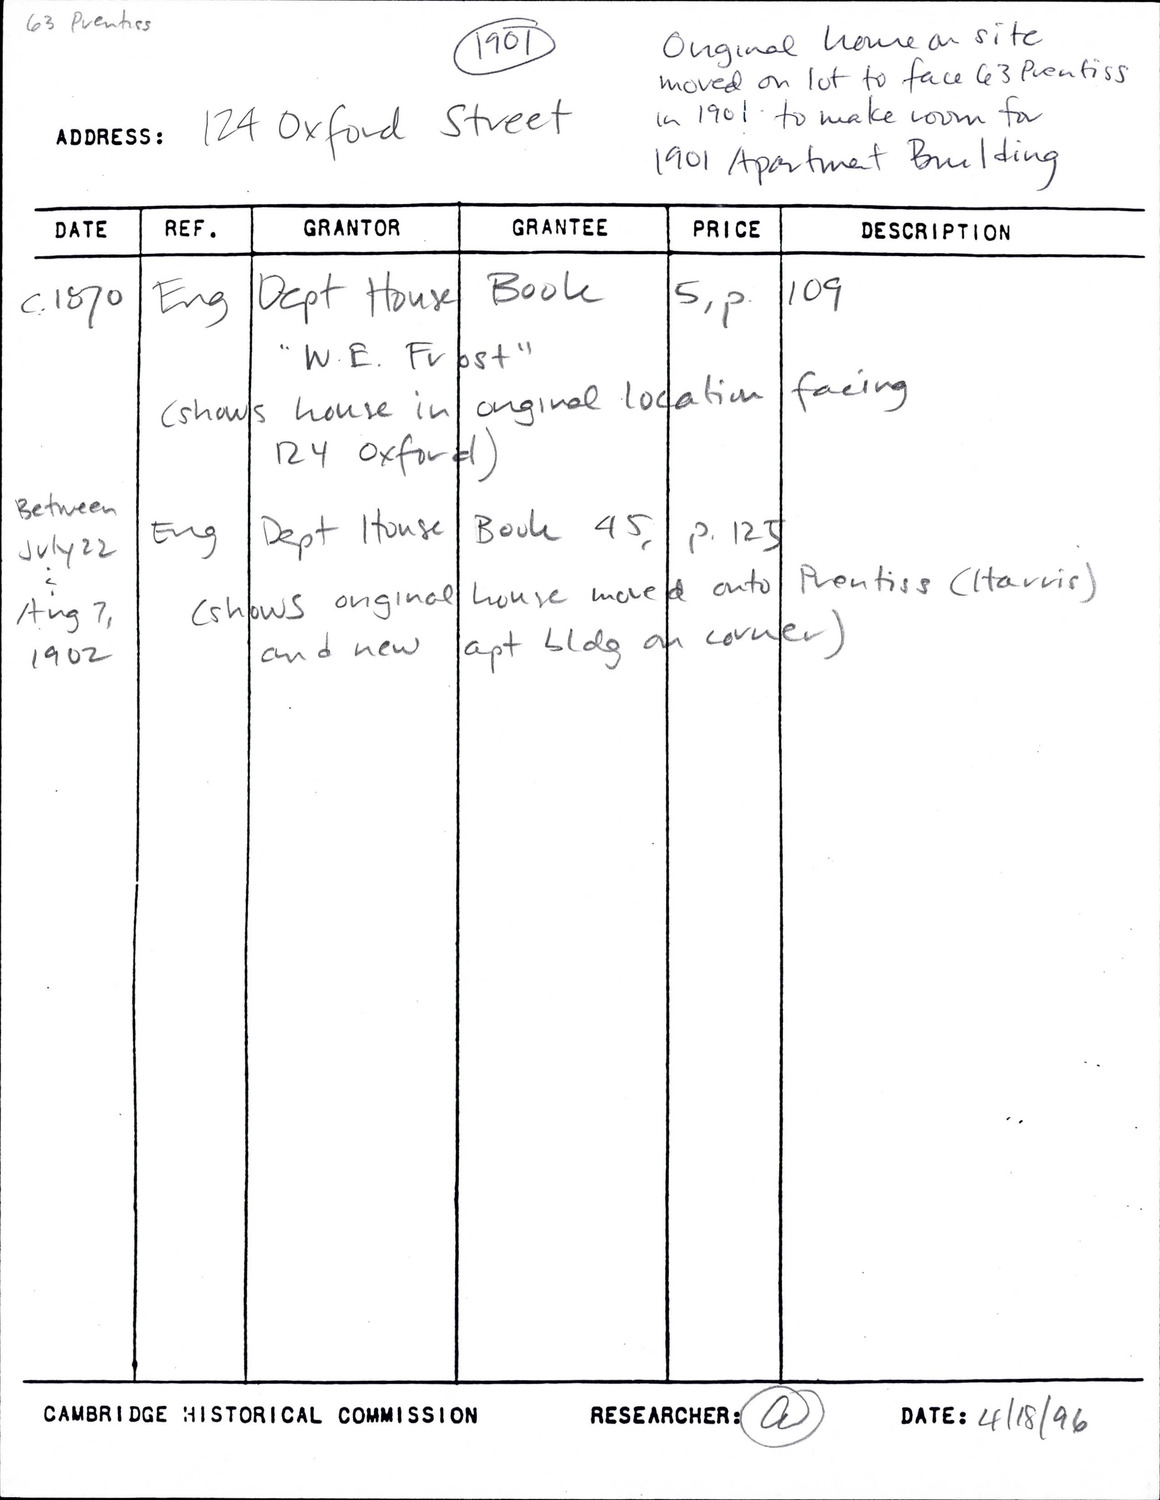 63 Prentiss
1901
Original house on site
moved on lot to face 63 Prentiss
in 1901 to make room for
1901 Apartment Building
ADDRESS: 124 Oxford Street
DATE REF. GRANTOR GRANTEE PRICE DESCRIPTION
c.1870 Eng Dept House Book 5, p. 109
"W.E. Frost"
(shows house in original location facing
124 Oxford)
Between
July 22
&
Aug 7,
1902
Eng Dept House Book 45, p. 125
(shows original house moved onto Prentiss (Harris)
and new apt bldg on corner)
CAMBRIDGE HISTORICAL COMMISSION RESEARCHER: DATE: 4/18/96